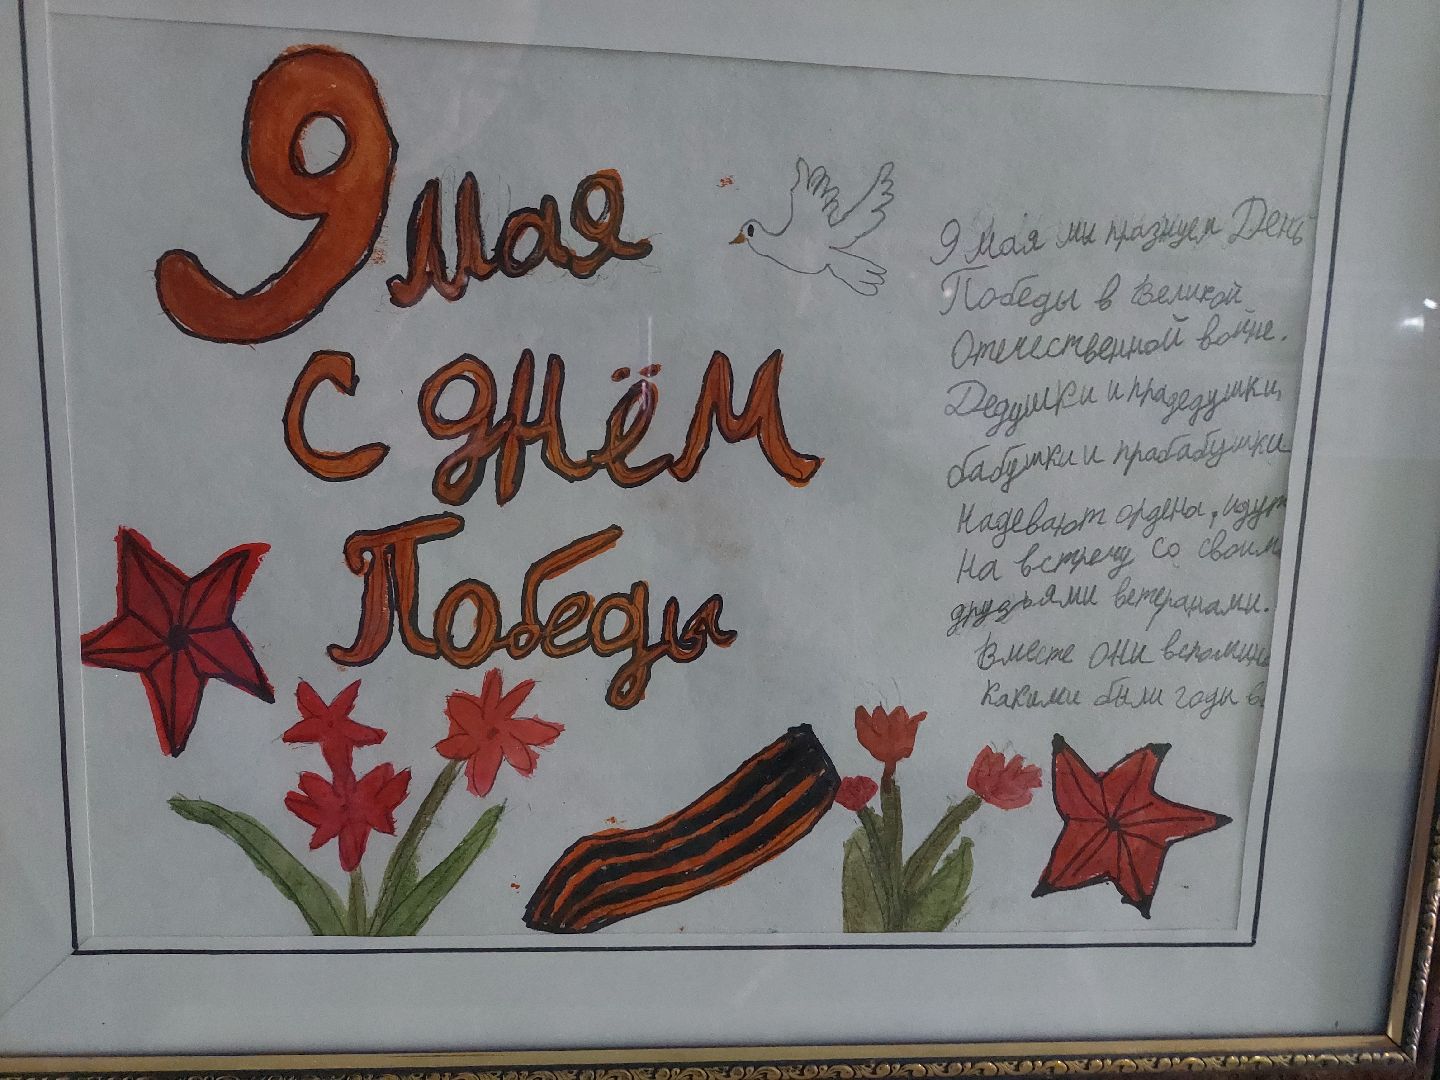 9 мая
с днём
Победы
9 мая мы празнуем День
Победы в Великой
Отечественной войне.
Дедушки и прадедушки,
бабушки и прабабушки
Надевают ордена, идут
На встречу со своим
друзьями ветеранами.
Вместе они вспомина
какими были годы в